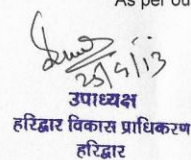 As per ou
25/5/13
उपाध्यक्ष
हरिद्वार विकास प्राधिकरण
हरिद्वार